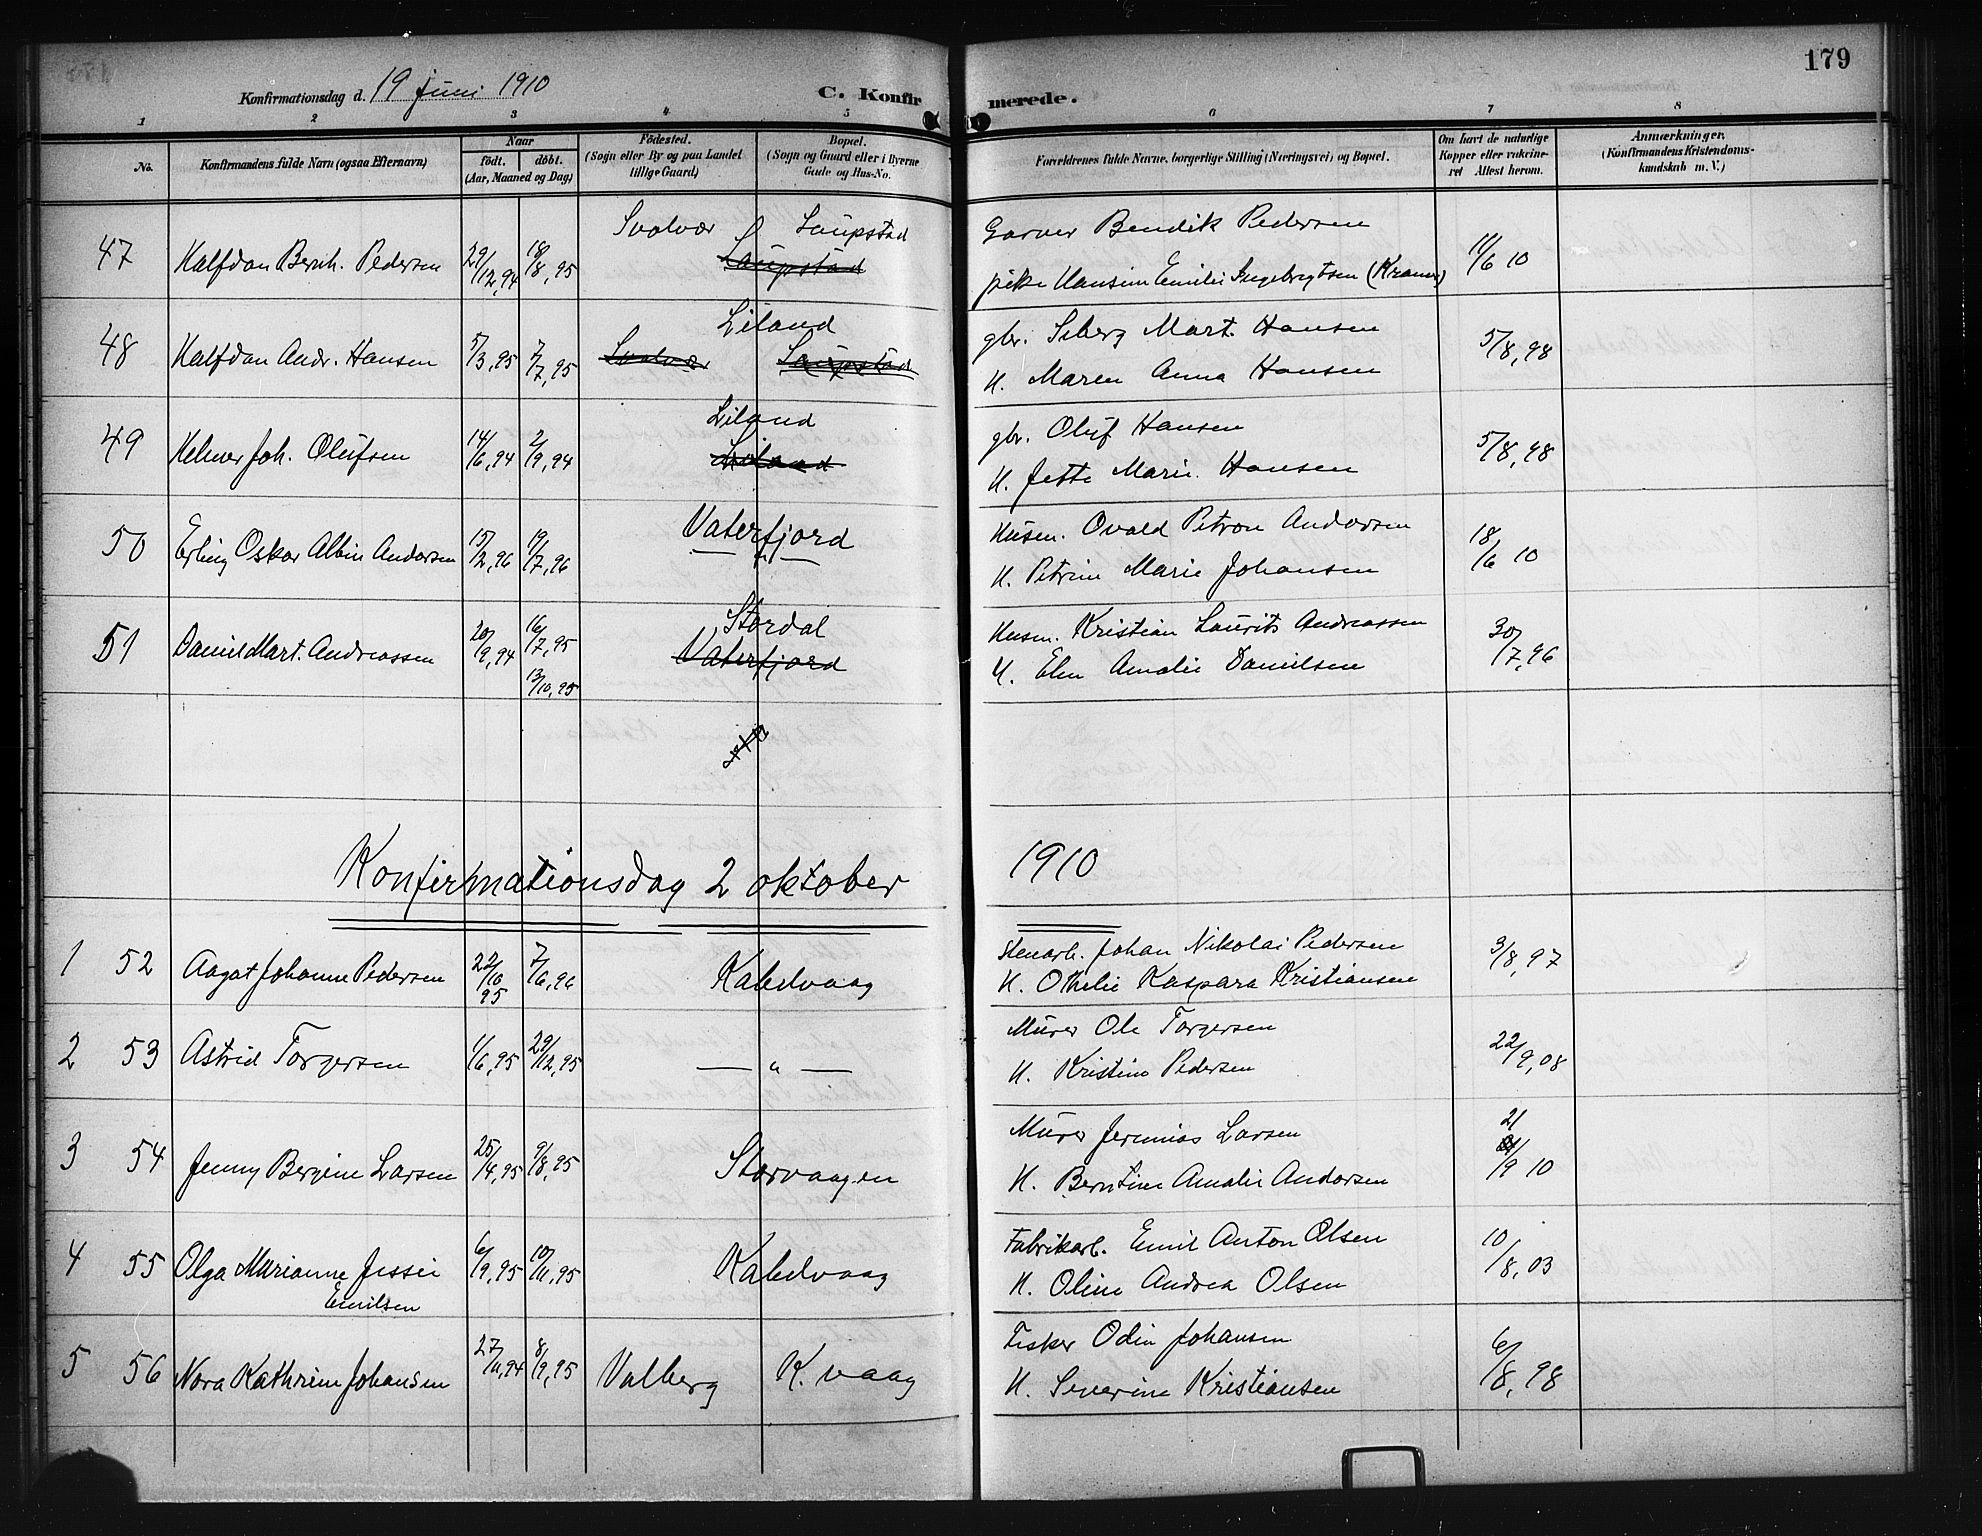 179
Konfirmationsdag d. 19 juni 1910
C. Konfirmerede.
1 2 3 4 5 6 7 8
No.
Konfirmandens fulde Navn (ogsaa Efternavn)
Naar
født. døbt.
(Aar, Maaned og Dag)
Fødested.
(Sogn eller By og paa Landet
tillige Gaard)
Bopæl.
(Sogn og Gaard eller i Byerne
Gade og Hus-No.
Forældrenes fulde Navne, borgerlige Stilling (Næringsvei) og Bopæl.
Om havt de naturlige
Kopper eller vakcine-
ret Attest herom.
Anmærkninger.
(Konfirmandens Kristendoms-
kundskab m. V.)
47 Halfdan Bernh. Pedersen 29/12,94 18/8,95 Svolvær Laupstad
Laupstad
Garver Bendik Pedersen
pike Hansine Emilie Ingebrigtsen (Kramer) 11/6 10
48 Halfdan Andr. Hansen 5/3,95 7/7,95 Liland
Svolvær Laupstad
gbr. Siberg Mart. Hansen
H. Maren Anna Hansen 5/8,98
49 Helmer Joh. Olufsen 14/6,94 2/9,94 Liland
Liland
gbr. Oluf Hansen
H. Jette Marie Hansen 5/8,98
50 Erling Oskar Albin Andersen 15/2,96 19/7,96 Vaterfjord
Husm. Ovald Petron Andersen
H. Petrine Marie Johansen 18/6 10
51 Daniel Mart. Andreassen 20/9,94 16/7,95 Stordal
13/10,95 Vaterfjord
Husm. Kristian Laurits Andreassen
H. Elen Amalie Danielsen 30/7,96
Konfirmationsdag 2 oktober 1910
1 52 Aagot Johanne Pedersen 22/10 95 7/6,96 Kabelvaag
Stenarb. Johan Nikolai Pedersen
H. Othelie Kaspara Kristiansen 3/8,97
2 53 Astrid Torgersen 1/6,95 29/12,95 — „ —
Murer Ole Torgersen
H. Kristine Pedersen 22/9,08
3 54 Jenny Bergine Larsen 25/4,95 9/8,95 Storvaagen
Murer Jeremias Larsen
H. Berntine Amalie Andersen 21/9 10
4 55 Olga Marianne Jessie
Emilsen 6/9,95 10/11,95 Kabelvaag
Fabrikarb. Emil Anton Olsen
H. Oline Andrea Olsen 10/8,03
5 56 Nora Kathrine Johansen 27/11,94 8/9,95 Valberg K. vaag
Fisker Odin Johansen
H. Severine Kristiansen 6/8,98